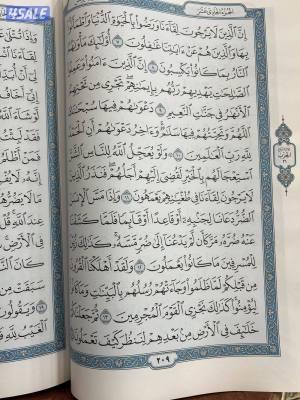 4SALE
الجزء الحادي عشر
إِنَّ ٱلَّذِينَ لَا يَرْجُونَ لِقَآءَنَا وَرَضُوا۟ بِٱلْحَيَوٰةِ ٱلدُّنْيَا وَٱطْمَأَنُّوا۟
بِهَا وَٱلَّذِينَ هُمْ عَنْ ءَايَٰتِنَا غَٰفِلُونَ ٧ أُو۟لَٰٓئِكَ مَأْوَىٰهُمُ
ٱلنَّارُ بِمَا كَانُوا۟ يَكْسِبُونَ ٨ إِنَّ ٱلَّذِينَ ءَامَنُوا۟ وَعَمِلُوا۟
ٱلصَّٰلِحَٰتِ يَهْدِيهِمْ رَبُّهُم بِإِيمَٰنِهِمْ تَجْرِى مِن تَحْتِهِمُ
ٱلْأَنْهَٰرُ فِى جَنَّٰتِ ٱلنَّعِيمِ ٩ دَعْوَىٰهُمْ فِيهَا سُبْحَٰنَكَ
ٱللَّهُمَّ وَتَحِيَّتُهُمْ فِيهَا سَلَٰمٌ وَءَاخِرُ دَعْوَىٰهُمْ أَنِ ٱلْحَمْدُ
لِلَّهِ رَبِّ ٱلْعَٰلَمِينَ ١٠ وَلَوْ يُعَجِّلُ ٱللَّهُ لِلنَّاسِ ٱلشَّرَّ
ٱسْتِعْجَالَهُم بِٱلْخَيْرِ لَقُضِىَ إِلَيْهِمْ أَجَلُهُمْ فَنَذَرُ ٱلَّذِينَ
لَا يَرْجُونَ لِقَآءَنَا فِى طُغْيَٰنِهِمْ يَعْمَهُونَ ١١ وَإِذَا مَسَّ ٱلْإِنسَٰنَ
ٱلضُّرُّ دَعَانَا لِجَنۢبِهِۦٓ أَوْ قَاعِدًا أَوْ قَآئِمًا فَلَمَّا كَشَفْنَا
عَنْهُ ضُرَّهُۥ مَرَّ كَأَن لَّمْ يَدْعُنَآ إِلَىٰ ضُرٍّ مَّسَّهُۥ كَذَٰلِكَ زُيِّنَ
لِلْمُسْرِفِينَ مَا كَانُوا۟ يَعْمَلُونَ ١٢ وَلَقَدْ أَهْلَكْنَا ٱلْقُرُونَ
مِن قَبْلِكُمْ لَمَّا ظَلَمُوا۟ وَجَآءَتْهُمْ رُسُلُهُم بِٱلْبَيِّنَٰتِ وَمَا كَانُوا۟
لِيُؤْمِنُوا۟ كَذَٰلِكَ نَجْزِى ٱلْقَوْمَ ٱلْمُجْرِمِينَ ١٣ ثُمَّ جَعَلْنَٰكُمْ
خَلَٰٓئِفَ فِى ٱلْأَرْضِ مِنۢ بَعْدِهِمْ لِنَنظُرَ كَيْفَ تَعْمَلُونَ ١٤
٢٠٩
وَإِذَا تُتْلَىٰ
لِقَآءَنَا
لِىٓ أَنْ
إِنِّىٓ أَخَافُ
لَّوْ شَآءَ
فَقَدْ لَبِثْتُ
فَمَنْ أَظْلَمُ
إِنَّهُۥ لَا
مَا لَا يَضُرُّهُمْ
عِندَ ٱللَّهِ قُلْ
فِى ٱلْأَرْضِ
كَانَ ٱلنَّاسُ
سَبَقَتْ مِن
وَيَقُولُونَ
ٱلْغَيْبُ لِلَّهِ